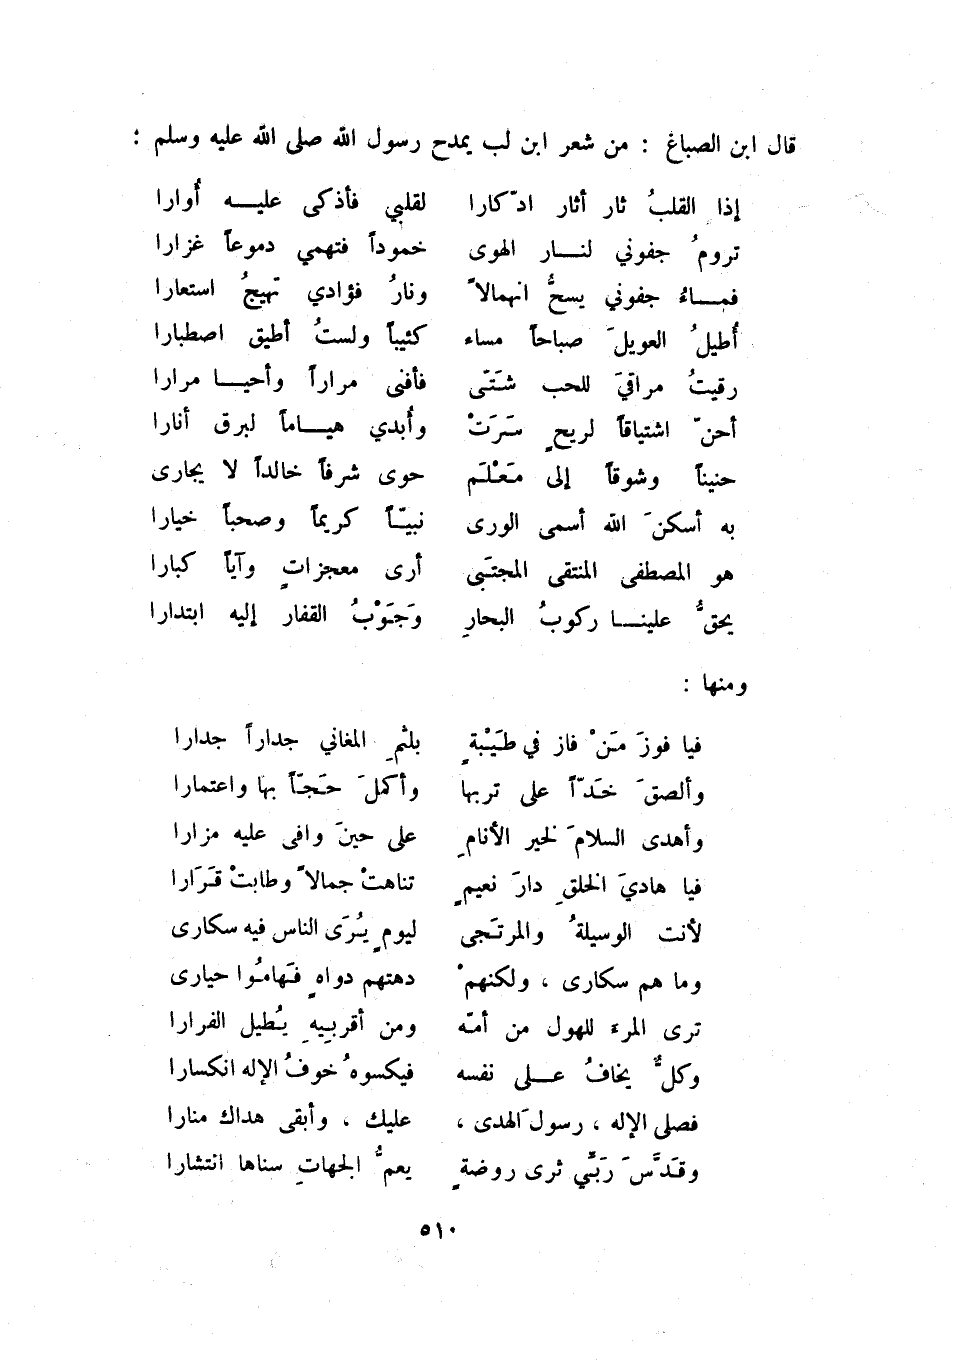 قال ابن الصباغ : من شعر ابن لب يمدح رسول الله صلى الله عليه وسلم :
إذا القلبُ ثار أثار ادّكارا لقلبي فأذكى عليه أُوارا
ترومُ جفوني لنار الهوى خموداً فتهمي دموعاً غزارا
فماءُ جفوني يسحُّ انهمالاً ونارُ فؤادي تهيجُ استعارا
أُطيلُ العويلَ صباحاً مساء كئيباً ولستُ أطيق اصطبارا
رقيتُ مراقيَ للحب شَتّى فأفنى مراراً وأحيا مرارا
أحنّ اشتياقاً لريحٍ سَرَتْ وأُبدي هياماً لبرق أنارا
حنيناً وشوقاً إلى مَعْلَم حوى شرفاً خالداً لا يجارى
به أسكنَ الله أسمى الورى نبيّاً كريماً وصحباً خيارا
هو المصطفى المنتقى المجتَبى أرى معجزاتٍ وآياً كبارا
يحقُّ علينا ركوبُ البحارِ وجَوْبُ القفار إليه ابتدارا
ومنها :
فيا فوزَ مَنْ فاز في طَيْبةٍ بلثمِ المغاني جداراً جدارا
وألصقَ خَدّاً على تربها وأكملَ حَجّاً بها واعتمارا
وأهدى السلامَ لخير الأنامِ على حينَ وافى عليه مزارا
فيا هاديَ الخلقِ دارَ نعيمٍ تناهتْ جمالاً وطابتْ قَرَارا
لأنت الوسيلةُ والمرتَجى ليومٍ يُرَى الناس فيه سكارى
وما هم سكارى ، ولكنهمْ دهتهم دواهٍ فَهامُوا حيارى
ترى المرء للهول من أمّه ومن أقربِيهِ يُطيل الفرارا
وكلٌّ يخافُ على نفسه فيكسوهُ خوفُ الإله انكسارا
فصلى الإله ، رسولَ الهدى ، عليك ، وأبقى هداك منارا
وقَدَّسَ رَبّي ثرى روضةٍ يعمُّ الجهاتِ سناها انتشارا
٥١٠